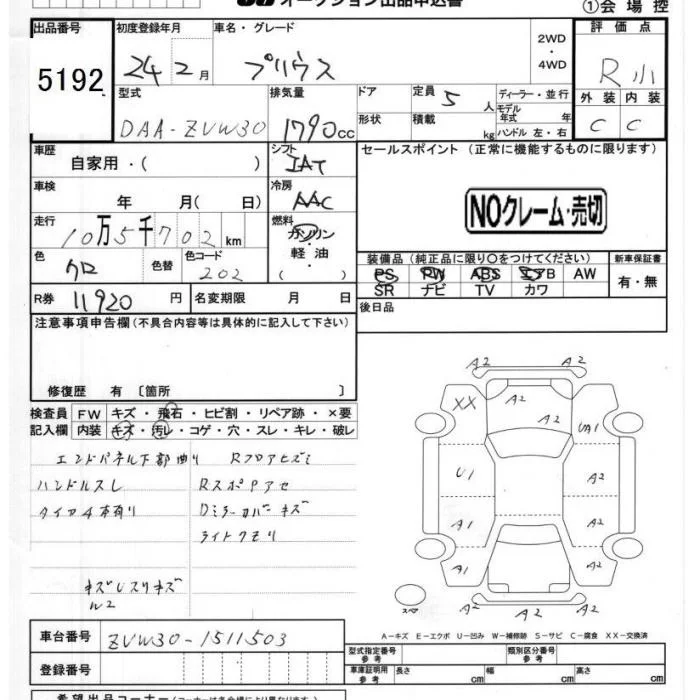 オークション出品申込書
①会場控
出品番号 初度登録年月 車名・グレード 評価点
5192 24年2月 プリウス 2WD・4WD R小
型式 排気量 ドア 定員 ディーラー・並行 外装 内装
DAA-ZVW30 1790cc 5人 モデル年式 年 C C
形状 積載 kg ハンドル 左・右
車歴 シフト セールスポイント (正常に機能するものに限ります)
自家用・( ) IAT
車検 冷房
年 月( 日) AAC NOクレーム・売切
走行 燃料
10万5千702km ガソリン
色 色替 色コード 軽油 装備品 (純正品に限り〇をつけてください) 新車保証書
クロ 202 ( ) PS PW ABS エアB AW 有・無
R券 11920円 名変期限 月 日 SR ナビ TV カワ
後日品
注意事項申告欄 (不具合内容等は具体的に記入して下さい)
修復歴 有 〔箇所 〕
検査員 FW キズ・飛石・ヒビ割・リペア跡・×要
記入欄 内装 キズ・汚レ・コゲ・穴・スレ・キレ・破レ
エンドパネル下部曲り Rフロアヒズミ
ハンドルスレ
タイヤ4本有り Dミラーカバーキズ
ライトクモリ
A2 A2
XX A2 A2 UA1
U1 A2
A1 A2
A1 A2
A2 A2
スペ
A-キズ E-エクボ U-凹み W-補修跡 S-サビ C-腐食 XX-交換済
車台番号 ZVW30-1511503
型式指定番号 参考 類別区分番号 参考
登録番号 車庫証明用 参考 長さ cm 幅 cm 高さ cm
希望出品コーナー